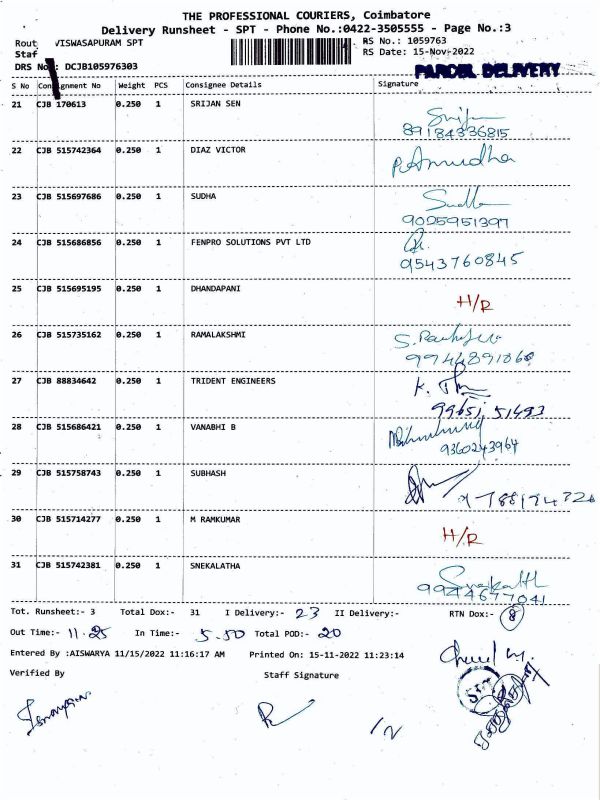 THE PROFESSIONAL COURIERS, Coimbatore
Delivery Runsheet - SPT - Phone No.:0422-3505555 - Page No.:3
Rout VISWASAPURAM SPT RS No.: 1059763
Staf RS Date: 15-Nov-2022
DRS No.: DCJB105976303 PARCEL DELIVERY
S No Consignment No Weight PCS Consignee Details Signature
21 CJB 170613 0.250 1 SRIJAN SEN
89184336815
22 CJB 515742364 0.250 1 DIAZ VICTOR P. Anudha
23 CJB 515697686 0.250 1 SUDHA Sudha
9025951397
24 CJB 515686856 0.250 1 FENPRO SOLUTIONS PVT LTD
9543760845
25 CJB 515695195 0.250 1 DHANDAPANI H/R
26 CJB 515735162 0.250 1 RAMALAKSHMI
9944891860
27 CJB 88834642 0.250 1 TRIDENT ENGINEERS K.
99651 51493
28 CJB 515686421 0.250 1 VANABHI B
9360243964
29 CJB 515758743 0.250 1 SUBHASH
30 CJB 515714277 0.250 1 M RAMKUMAR H/R
31 CJB 515742381 0.250 1 SNEKALATHA
9944677041
Tot. Runsheet:- 3 Total Dox:- 31 I Delivery:- 23 II Delivery:- RTN Dox:- 8
Out Time:- 11.25 In Time:- 5.50 Total POD:- 20
Entered By :AISWARYA 11/15/2022 11:16:17 AM Printed On: 15-11-2022 11:23:14
Verified By Staff Signature